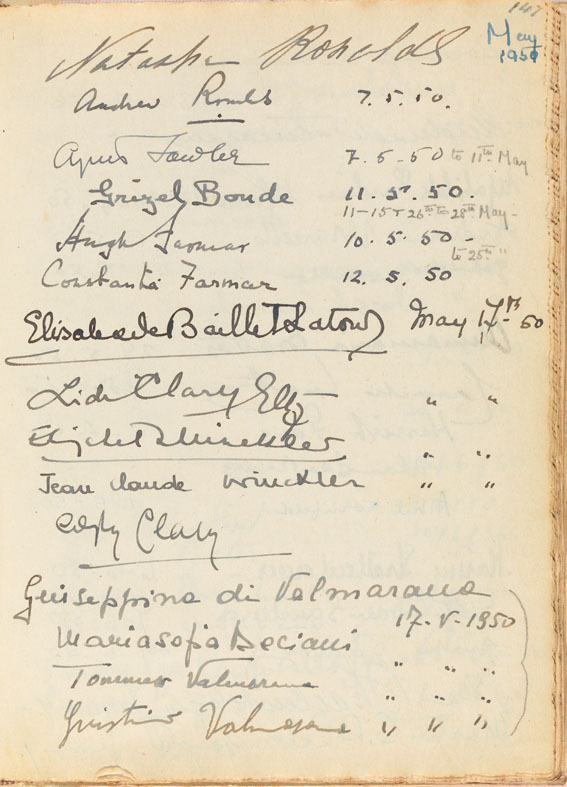 147
May
1950
Natasha Ronalds
Andrew 7.5.50.
Agnes Fowler 7.5.50 to 11th May
Grizel Bonde 11.5.50.
11-15 + 26th to 28th May-
Hugh Farmar 10.5.50 -
to 25th "
Constantia Farmar 12.5.50
Elisabeth de Baillet Latour May 17th 50
Lidi Clary " "
" "
Jean Claude Winckler " "
Clary
Guiseppina di Valmarana
17-V-1950
Mariasofia Deciani
" " "
Tommaso Valmarana
" " "
Giustino Valmarana " " "